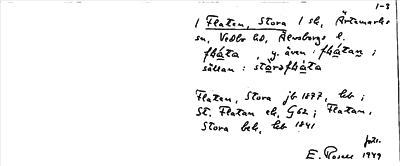 1-3
1 Flaten, Stora 1 sk, Ärtemarks
sn, Vedbo hd, Älvsborgs l.
flàta, y. även: flàtan;
sällan: stórəflàta
Flaten, Stora jb 1877, kb;
St. Flatan ek, G62; Flatan,
Stora bek, kb 1841
E. Rosell 1949